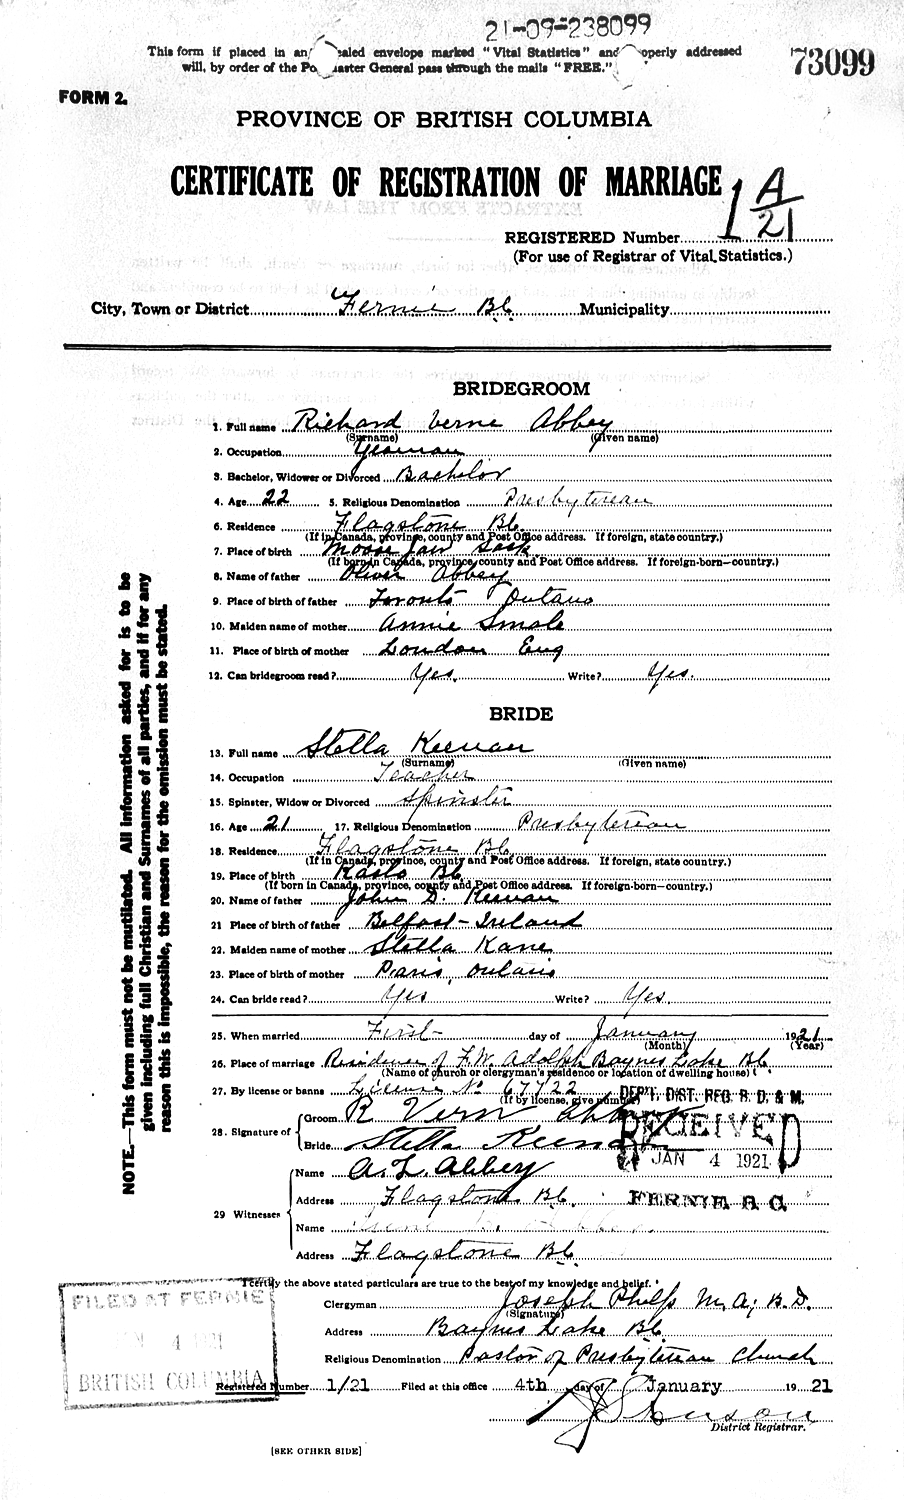 21-09-238099
This form if placed in an sealed envelope marked "Vital Statistics" and properly addressed
will, by order of the Postmaster General pass through the mails "FREE."
73099
FORM 2.
PROVINCE OF BRITISH COLUMBIA
CERTIFICATE OF REGISTRATION OF MARRIAGE
1 A/21
REGISTERED Number
(For use of Registrar of Vital Statistics.)
City, Town or District Fernie B.C. Municipality
BRIDEGROOM
1. Full name Richard Verne Abbey
(Surname) (Given name)
2. Occupation Yeoman
3. Bachelor, Widower or Divorced Bachelor
4. Age 22 5. Religious Denomination Presbyterean
6. Residence Flagstone B.C.
(If in Canada, province, county and Post Office address. If foreign, state country.)
7. Place of birth Moose Jaw Sask
(If born in Canada, province, county and Post Office address. If foreign-born—country.)
8. Name of father Oliver Abbey
9. Place of birth of father Toronto Ontario
10. Maiden name of mother Annie Smale
11. Place of birth of mother London Eng
12. Can bridegroom read? Yes. Write? Yes.
BRIDE
13. Full name Stella Keenan
(Surname) (Given name)
14. Occupation Teacher
15. Spinster, Widow or Divorced Spinster
16. Age 21 17. Religious Denomination Presbyterean
18. Residence Flagstone B.C.
(If in Canada, province, county and Post Office address. If foreign, state country.)
19. Place of birth Kaslo B.C.
(If born in Canada, province, county and Post Office address. If foreign-born—country.)
20. Name of father John D. Keenan
21 Place of birth of father Belfast-Ireland
22. Maiden name of mother Stella Kane
23. Place of birth of mother Paris, Ontario
24. Can bride read? Yes Write? Yes.
25. When married First day of January 1921
(Month) (Year)
26. Place of marriage Residence of F.W. Adolph Baynes Lake B.C.
(Name of church or clergyman's residence or location of dwelling house)
27. By license or banns License No 67722
(If by license, give number)
DEP'T. DIST. REG. B. D. & M.
28. Signature of
Groom R Vern Abbey
RECEIVED
Bride Stella Keenan
JAN 4 1921
29 Witnesses
Name A. L. Abbey
Address Flagstone B.C.
FERNIE B. C.
Name
Address Flagstone B.C.
I certify the above stated particulars are true to the best of my knowledge and belief.
Clergyman Joseph Phelps M.A; B.D.
(Signature)
Address Baynes Lake B.C.
Religious Denomination Pastor of Presbyterean Church
Registered Number 1/21 Filed at this office 4th day of January 1921
District Registrar.
[SEE OTHER SIDE]
FILED AT FERNIE
JAN 4 1921
BRITISH COLUMBIA
NOTE.—This form must not be mutilated. All information asked for is to be
given including full Christian and Surnames of all parties, and if for any
reason this is impossible, the reason for the omission must be stated.